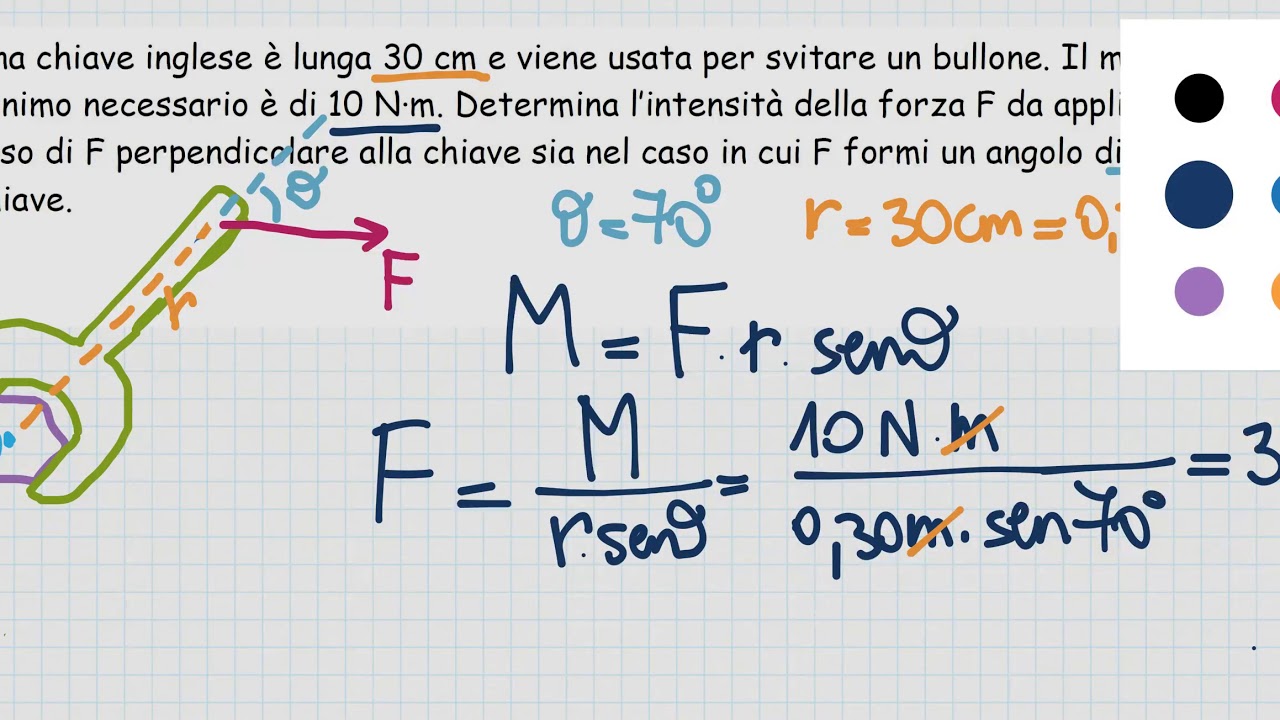 na chiave inglese è lunga 30 cm e viene usata per svitare un bullone. Il m
nimo necessario è di 10 N·m. Determina l'intensità della forza F da appli
so di F perpendicolare alla chiave sia nel caso in cui F formi un angolo di
iave.
θ
θ = 70°
r = 30cm = 0,
F
r
M = F · r · senθ
F = M / r·senθ = 10 N·m / 0,30m · sen70° = 3